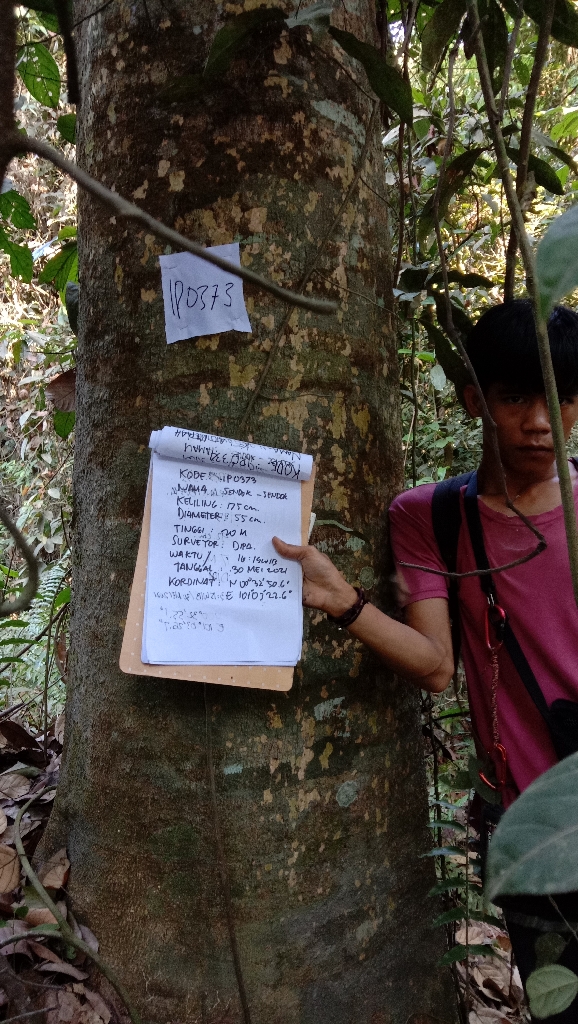 IP0373
KODE : IP0373
NAMA : SENDOK - SENDOK
KELILING : 175 cm.
DIAMETER : 55 cm.
TINGGI : 20 M
SURVEYOR : DIPA.
WAKTU / 16:15 WIB
TANGGAL 30 MEI 2021
KORDINAT : N 00°32'50.6"
E 101°01'22.6"